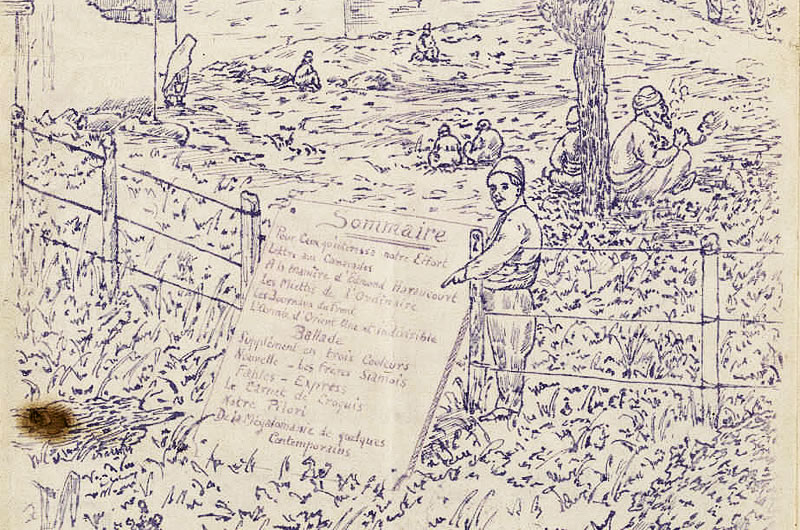 Sommaire
Pour Ceux qu'intéresse notre Effort
Lettre aux Camarades
A la manière d'Edmond Haraucourt
Les Miettes de l'Ordinaire
Les Journaux du Front
L'Armée d'Orient Une et indivisible
Ballade
Supplément en trois Couleurs
Nouvelle - Les Frères Siamois
Fables - Express
Le Carnet de Croquis
Notre
De la Mégalomanie de quelques
Contemporains